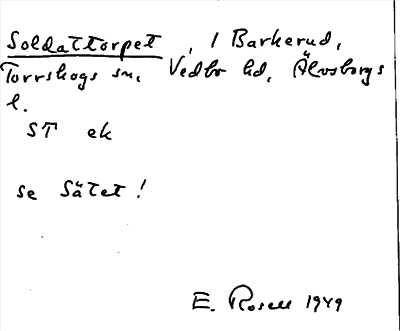 Soldattorpet, / Barkerud,
Torrskogs sn, Vedbo hd, Älvsborgs
l.
ST ek
se Sätet!
E. Rosell 1949